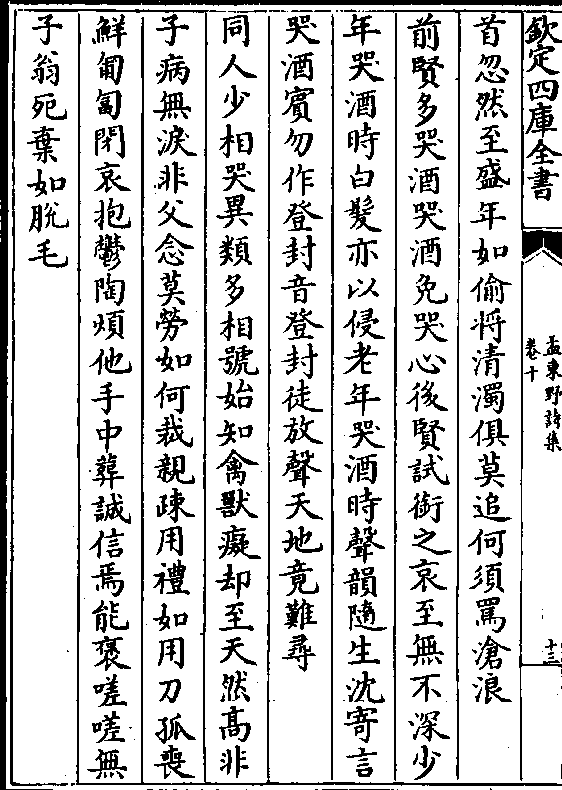 欽定四庫全書
孟東野詩集
卷十
十三
首忽然至盛年如偷將清濁俱莫追何須罵滄浪
前賢多哭酒哭酒免哭心後賢試銜之哀至無不深少
年哭酒時白髮亦以侵老年哭酒時聲韻隨生沈寄言
哭酒賔勿作登封音登封徒放聲天地竟難尋
同人少相哭異類多相號始知禽獸癡却至天然髙非
子病無淚非父念莫勞如何裁親疎用禮如用刀孤喪
鮮匍匐閉哀抱鬱陶煩他手中葬誠信焉能褒嗟嗟無
子翁死棄如脫毛